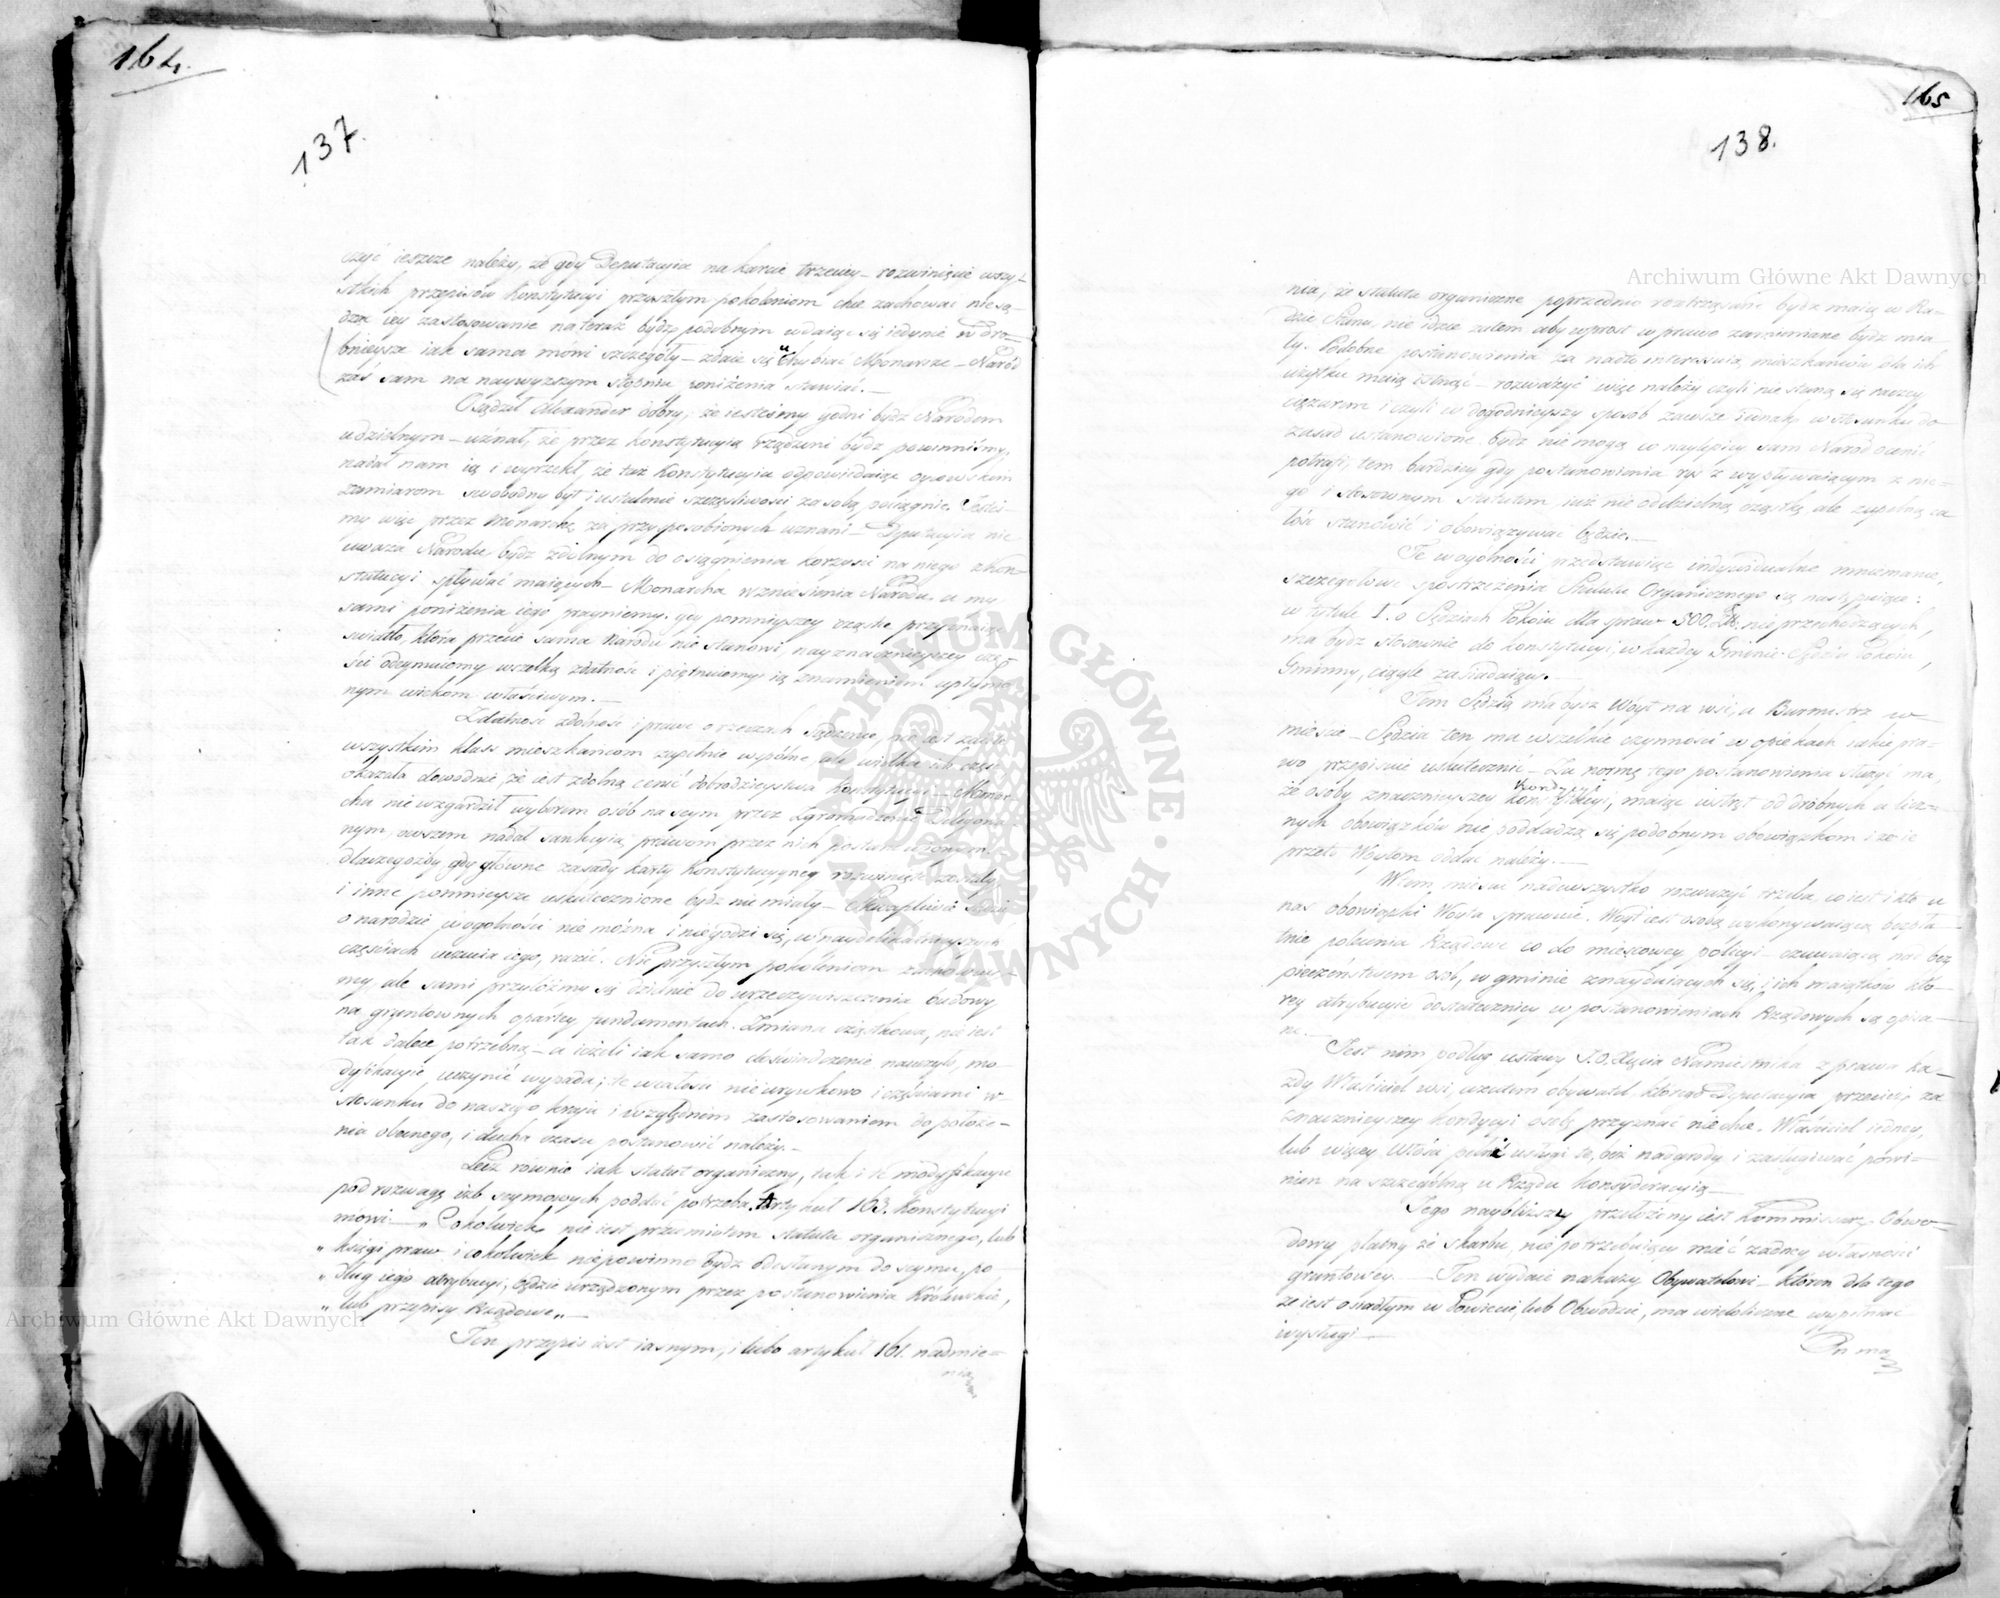 164.
137.
czyć ieszcze należy, że gdy Deputacyia na karcie trzeciey – rozwinięcie wszy-
stkich przepisów Konstytucyi przyszłym pokoleniom chce zachować nie są-
dząc iey zastosowanie na teraz bydź podobnym udaiąc się iedynie w dro-
bnieysze iak sama mówi szczegóły – zdaie się uchybiać Monarsze – Naród
zaś sam na naywyższym stopniu poniżenia stawiać. –
Osądził Alexander dobry, że iesteśmy godni bydź Narodem
udzielnym – uznał, że przez Konstytucyią rządzeni bydź powinniśmy,
nadał nam ią i wyrzekł, że taż Konstytucyia odpowiadaiąc oycowskim
zamiarom swobodny byt i ustalenie szczęśliwości za sobą pociągnie. Jeste-
my więc przez Monarchę za przysposobionych uznani – Deputacyia nie
uważa Narodu bydź zdolnym do osiągnienia korzyści na niego z Kon-
stytucyi spływać maiących – Monarcha wzniesienia Narodu a my
sami poniżenia iego pragniemy, gdy pomnieyszey cząstce przyznaiąc
światło, która przecie sama Narodu nie stanowi, nayznacznieyszey czę-
ści odeymuiemy wszelką zdatność i piętnuiemy ią znamieniem upłynio-
nym wiekom właściwym. –
Zdatność zdolność i prawe o rzeczach sądzenie, nie iest
wszystkim klass mieszkańcom zupełnie wspólne, ale wielka ich część
okazała dowodnie, że iest zdolną cenić dobrodzieystwa Konstytucyi – Monar-
cha nie wzgardził wyborem osób na seym przez Zgromadzenie
nym owszem nadał sankcyią prawom przez nich postanowionym
dlaczegożby gdy główne zasady karty Konstytucyyney rozwinięte zostały
i inne pomnieysze uskutecznione bydź nie miały –
o narodzie w ogólności nie można i niegodzi się, w naydelikatnieyszych
częściach uczucia iego, razić. Nie przyszłym pokoleniom zachowuy-
my, ale sami przyłóżmy się dzielnie do urzeczywiszczenia budowy
na gruntownych opartey fundamentach. Zmiana cząstkowa, nie iest
tak dalece potrzebną – a ieżeli iak samo doświadczenie nauczyło, mo-
dyfikacyie uczynić wypada; te w całości nie urywkowo i częściami w
stosunku do naszego kraju i względnem zastosowaniem do położe-
nia obecnego, i ducha czasu postanowić należy. –
Lecz równie iak statut organiczny, tak i te modyfikacyie
pod rozwagę izb seymowych poddać potrzeba. Artykuł 163. Konstytucyi
mówi – „Cokolwiek nie iest przedmiotem statutu organicznego, lub
„księgi praw i cokolwiek niepowinno bydź odesłanym do seymu, po
„dług iego atrybucyi, będzie urządzonym przez postanowienia Królewskie,
„lub przepisy Rządowe„ –
Ten przepis iest iasnym, i lubo artykuł 161. nadmie-
nia
165
138.
nia, że statuta organiczne poprzednio roztrząsane bydź maią w Ra-
dzie Stanu, nie idzie zatem aby wprost w prawo zamieniane bydź mia-
ły. Podobne postanowienia za nadto interessuią mieszkańców dla ich
użytku maią istnąć – rozważyć więc należy czyli nie staną się raczey
ciężarem i czyli w dogodnieyszy sposób zawsze iednak w stosunku do
zasad ustanowione bydź nie mogą co naylepiey sam Naród ocenić
potrafi, tem bardziey gdy postanowienia rys z wypływaiącym z nie-
go i stosownym statutem, iuż nie oddzielną cząstkę, ale zupełną ca-
łość stanowić i obowiązywać będzie. –
Te w ogólności przedstawiąc indywidualne mniemanie,
szczegółowe spostrzeżenia Statutu Organicznego są następuiące:
w tytule I. o Sędziach Pokoiu dla spraw 500. Zł. nieprzechodzących,
ma bydź stosownie do Konstytucyi, w każdey Gminie Sędzia Pokoiu,
Gminny, ciągle zasiadaiący. –
Tem Sędzią ma bydź Woyt na wsi, a Burmistrz w
mieście – Sędzia ten ma wszelkie czynności w opiekach iakie pra-
wo przepisuie uskutecznić – Za normę tego postanowienia służyć ma,
że osoby znacznieyszey Kondycyi, maiąc wstręt od drobnych a licz-
nych obowiązków nie poddadzą się podobnym obowiązkom i że ie
przeto Woytom oddać należy. –
W tem mieyscu nadewszystko rozważyć trzeba, co iest i kto u
nas obowiązki Woyta sprawuie. Woyt iest osobą wykonywaiącą bezpła-
tnie polecenia Rządowe co do mieyscowey policyi – czuwaiącą nad bez
pieczeństwem osób, w gminie znayduiących się, i ich maiątków któ-
rey atrybucyie dostateczniey w postanowieniach Rządowych są opisa-
ne. –
Jest nim podług ustawy J. O. Xięcia Namiestnika z prawa ka-
żdy Właściciel wsi, czutem obywatel którego Deputacyia przecież za
znacznieyszey kondycyi osobę przyznać niechce. Właściciel iedney,
lub więcey Włości pełnić usługi te, bez nadgrody i zasługiwać powi-
nien na szczególną u Rządu konsyderacyią –
Jego naybliższy przełożony iest Kommissarz Obwo-
dowy płatny ze skarbu, nie potrzebuiący mieć żadney własności
gruntowey. – Ten wydaie nakazy Obywatelowi – któren dla tego
że iest osiadłym w Powiecie, lub Obwodzie, ma wieloliczne wypełniać
wysługi –
On ma
Archiwum Główne Akt Dawnych
Archiwum Główne Akt Dawnych
ARCHIWUM GŁÓWNE AKT DAWNYCH